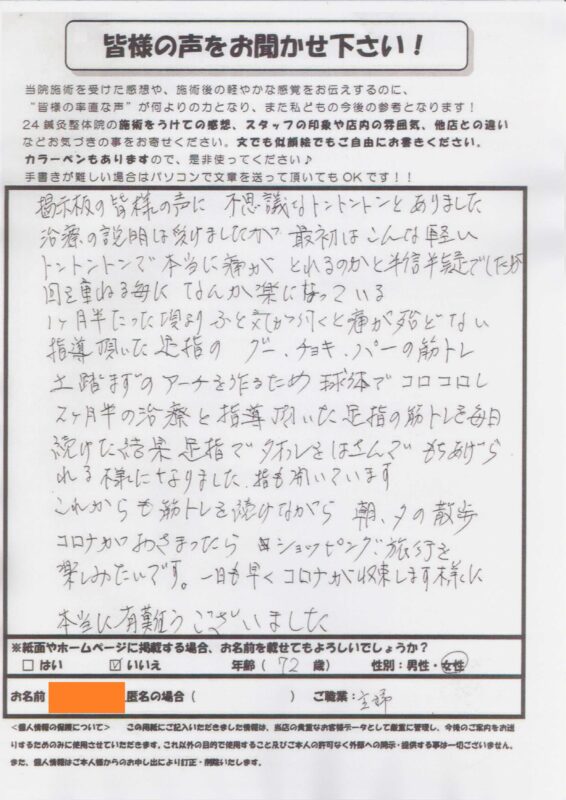 皆様の声をお聞かせ下さい！
当院施術を受けた感想や、施術後の軽やかな感覚をお伝えするのに、
“皆様の率直な声”が何よりの力となり、また私どもの今後の参考となります！
24鍼灸整体院の施術をうけての感想、スタッフの印象や店内の雰囲気、他店との違い
などお気づきの事をお寄せください。文でも似顔絵でもご自由にお書きください。
カラーペンもありますので、是非使ってください♪
手書きが難しい場合はパソコンで文章を送って頂いてもＯＫです！！
掲示板の皆様の声に 不思議なトントントンとありました
治療の説明は受けましたが 最初はこんな軽い
トントントンで本当に痛みが とれるのかと半信半疑でしたが
回を重ねる毎に なんか楽になっている
1ヶ月半たった頃より ふと気が付くと痛みが殆どない
指導頂いた足指の グー、チョキ、パーの筋トレ
土踏まずのアーチを作るため 球体でコロコロし
2ヶ月半の治療と指導頂いた足指の筋トレを毎日
続けた結果 足指でタオルをはさんで もちあげら
れる様になりました、指も開いています
これからも筋トレを続けながら 朝、夕の散歩
コロナがおさまったら ショッピング、旅行を
楽しみたいです。一日も早くコロナが収束します様に
本当に有難うございました
※紙面やホームページに掲載する場合、お名前を載せてもよろしいでしょうか？
□ はい ☑ いいえ 年齢（ 72 歳） 性別：男性・女性
お名前 匿名の場合（ ） ご職業：主婦
＜個人情報の保護について＞ この用紙にご記入いただきました情報は、当店の貴重なお客様データとして厳重に管理し、今後のご案内をお送
りするためのみに使用させていただきます。これ以外の目的で使用すること及びご本人の許可なく外部への開示・提供する事は一切ございません。
また、個人情報はご本人様からのお申し出により訂正・削除いたします。